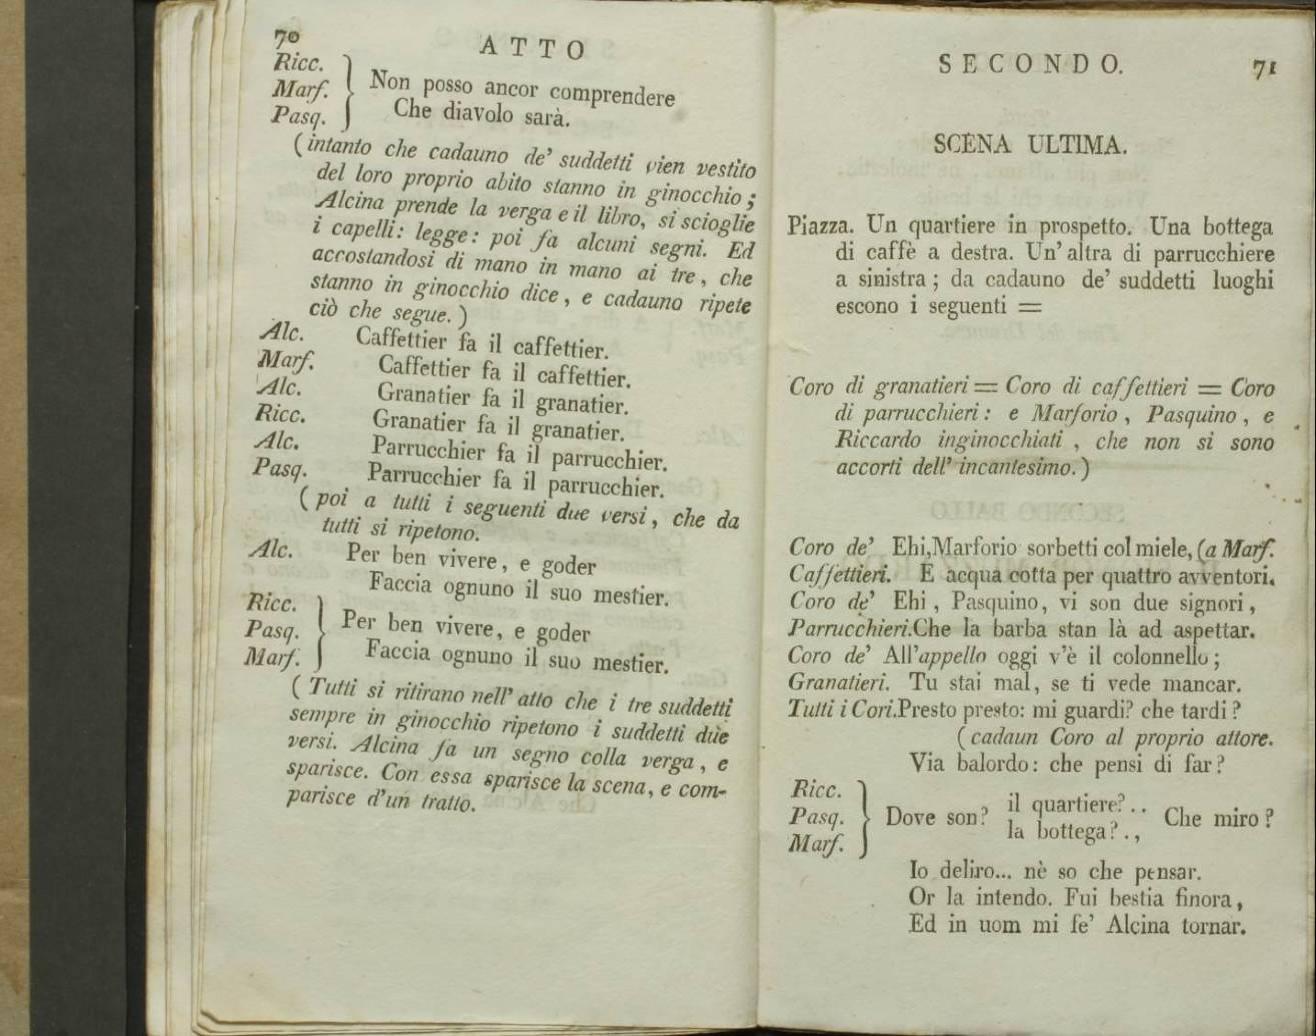 70
ATTO
Ricc.
Marf. } Non posso ancor comprendere
Pasq. Che diavolo sarà.
(intanto che cadauno de' suddetti vien vestito
del loro proprio abito stanno in ginocchio;
Alcina prende la verga e il libro, si scioglie
i capelli: legge: poi fa alcuni segni. Ed
accostandosi di mano in mano ai tre, che
stanno in ginocchio dice, e cadauno ripete
ciò che segue.)
Alc. Caffettier fa il caffettier.
Marf. Caffettier fa il caffettier.
Alc. Granatier fa il granatier.
Ricc. Granatier fa il granatier.
Alc. Parrucchier fa il parrucchier.
Pasq. Parrucchier fa il parrucchier.
(poi a tutti i seguenti due versi, che da
tutti si ripetono.
Alc. Per ben vivere, e goder
Faccia ognuno il suo mestier.
Ricc.
Pasq. } Per ben vivere, e goder
Marf. Faccia ognuno il suo mestier.
(Tutti si ritirano nell' atto che i tre suddetti
sempre in ginocchio ripetono i suddetti due
versi. Alcina fa un segno colla verga, e
sparisce. Con essa sparisce la scena, e com-
parisce d'un tratto.
SECONDO.
71
SCENA ULTIMA.
Piazza. Un quartiere in prospetto. Una bottega
di caffè a destra. Un' altra di parrucchiere
a sinistra; da cadauno de' suddetti luoghi
escono i seguenti =
Coro di granatieri = Coro di caffettieri = Coro
di parrucchieri: e Marforio, Pasquino, e
Riccardo inginocchiati, che non si sono
accorti dell' incantesimo.)
Coro de' Ehi, Marforio sorbetti col miele, (a Marf.
Caffettieri. E acqua cotta per quattro avventori.
Coro de' Ehi, Pasquino, vi son due signori,
Parrucchieri. Che la barba stan là ad aspettar.
Coro de' All'appello oggi v'è il colonnello;
Granatieri. Tu stai mal, se ti vede mancar.
Tutti i Cori. Presto presto: mi guardi? che tardi?
(cadaun Coro al proprio attore.
Via balordo: che pensi di far?
Ricc. il quartiere?..
Pasq. } Dove son? Che miro?
Marf. la bottega?.,
Io deliro... nè so che pensar.
Or la intendo. Fui bestia finora,
Ed in uom mi fe' Alcina tornar.